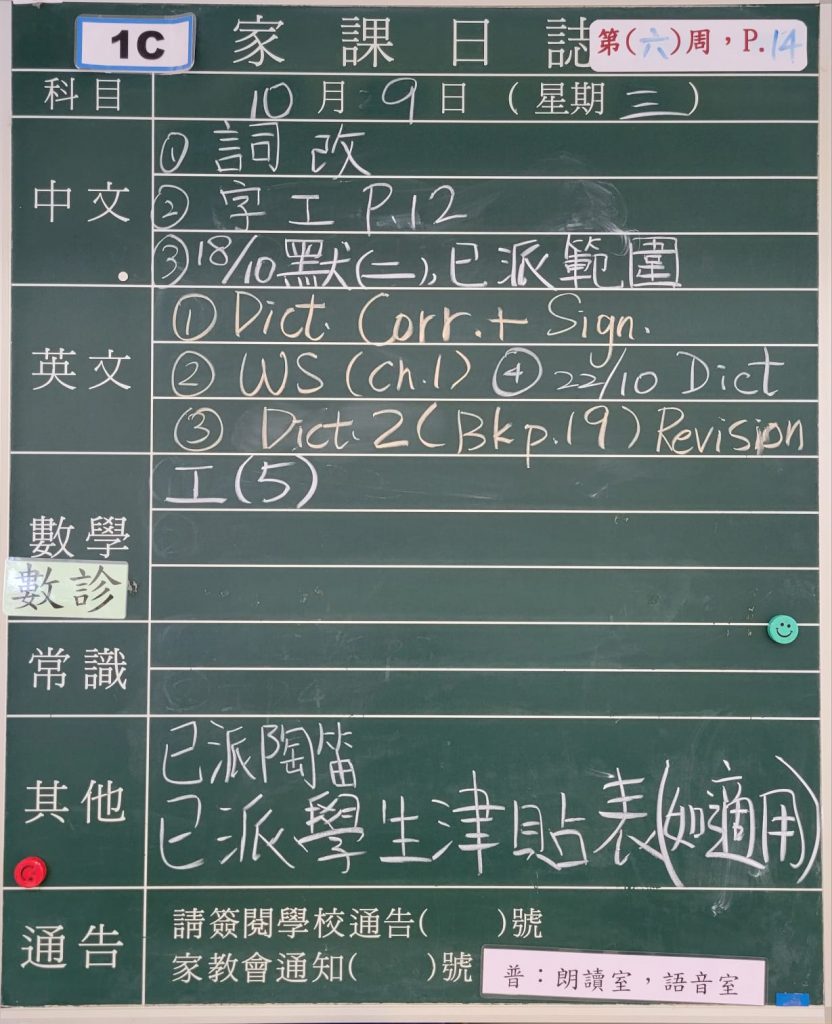 1C 家課日誌 第(六)周，P.14
科目 10月9日(星期三)
中文
① 詞改
② 字工 P.12
③ 18/10 默(二), 已派範圍
英文
① Dict. Corr. + Sign.
② WS (Ch.1) ④ 22/10 Dict
③ Dict. 2 (Bk p.19) Revision
數學
工(5)
數診
常識
其他
已派陶笛
已派學生津貼表(如適用)
通告
請簽閱學校通告( )號
家教會通知( )號
普：朗讀室，語音室